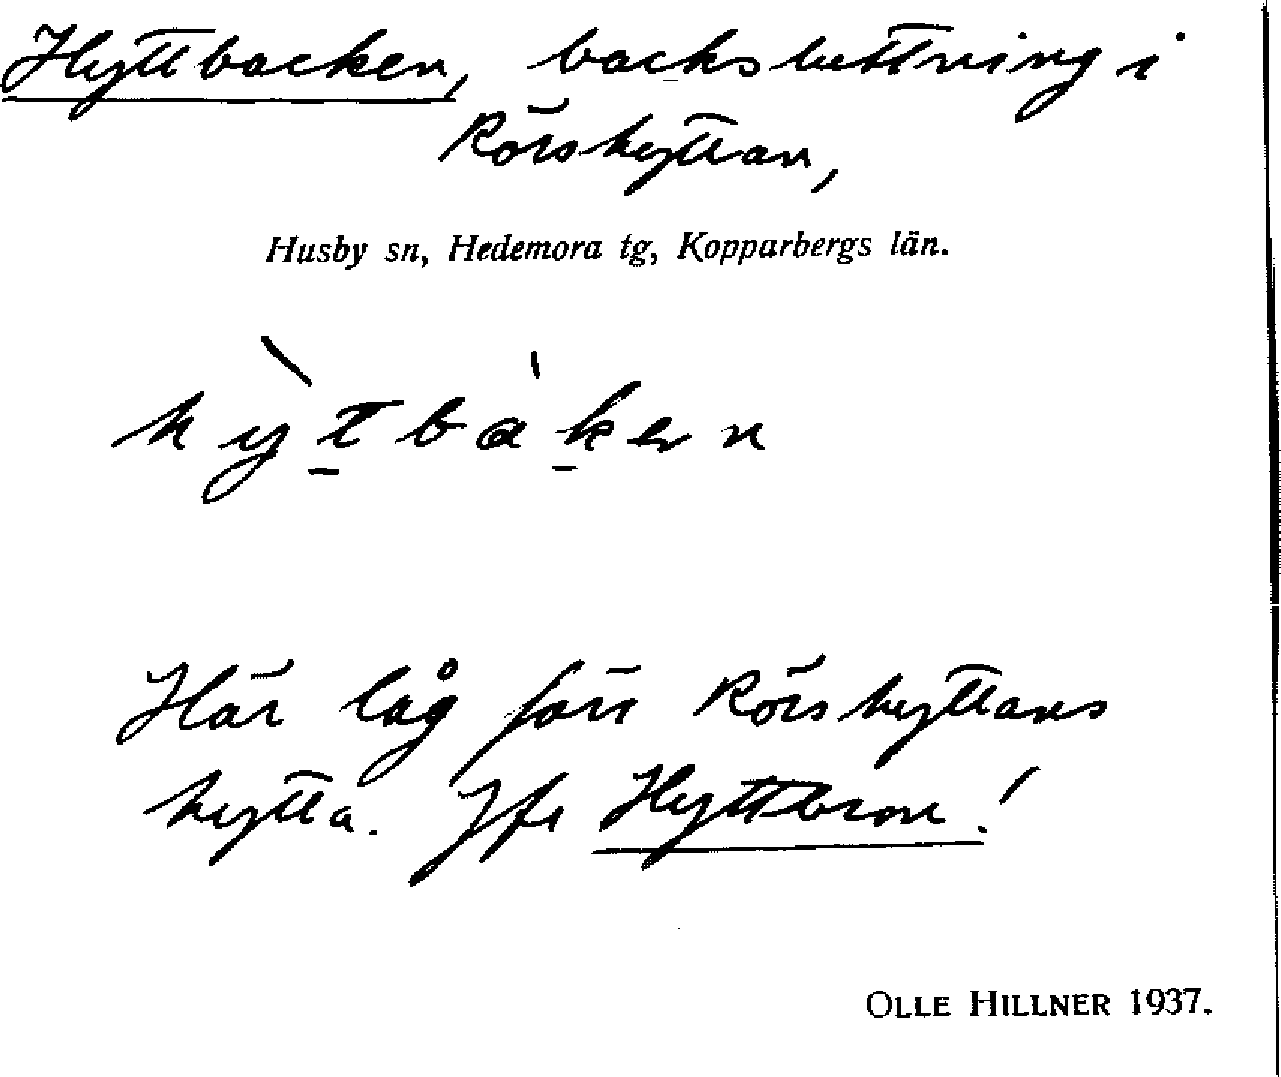 Hyttbacken, backsluttning i
Rörshyttan,
Husby sn, Hedemora tg, Kopparbergs län.
hỳtbàken
Här låg förr Rörshyttans
hytta. Jfr Hyttbron!
OLLE HILLNER 1937.